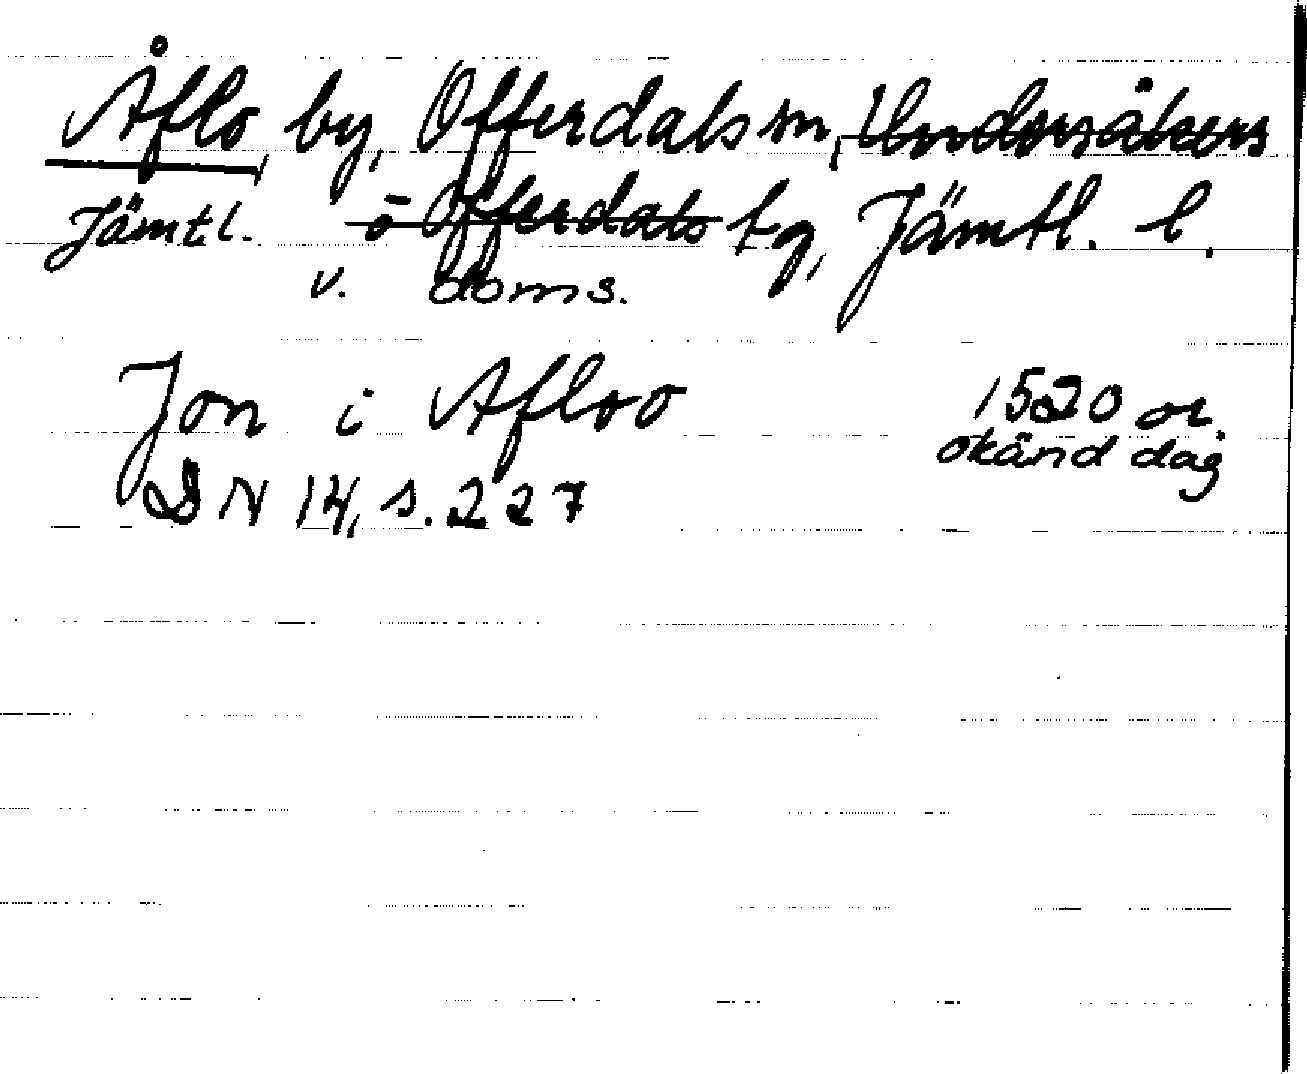 Åflo, by, Offerdals sn, Undersåkers
Jämtl. o Offerdals tg, Jämtl. l.
v. doms.
Jon i Afloo 1520 or.
okänd dag
DN 14, s. 227